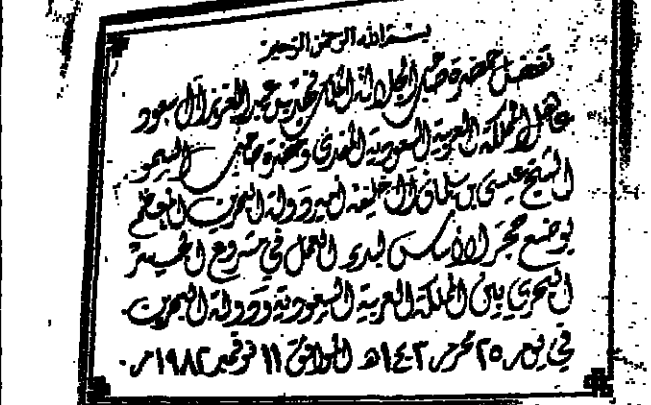 بسم الله الرحمن الرحيم
تفضل حضرة صاحب الجلالة الملك فهد بن عبد العزيز آل سعود
عاهل المملكة العربية السعودية المفدى وحضرة صاحب السمو
الشيخ عيسى بن سلمان آل خليفة أمير دولة البحرين المعظم
بوضع حجر الأساس لبدء العمل في مشروع الجسر
البحري بين المملكة العربية السعودية ودولة البحرين
في يوم ٢٥ محرم ١٤٠٢هـ الموافق ١١ نوفمبر ١٩٨٢م.